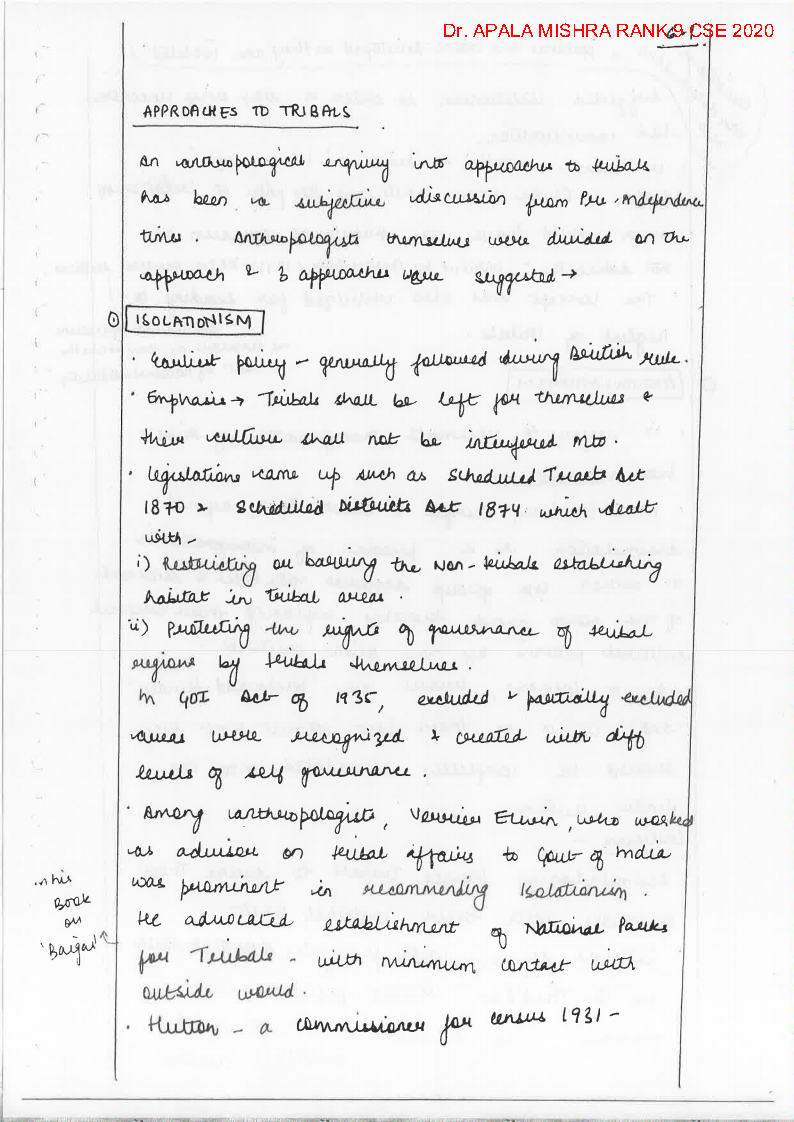 Dr. APALA MISHRA RANK 9 CSE 2020
APPROACHES TO TRIBALS
An anthropological enquiry into approaches to tribals
has been a subjective discussion from Pre-independence
times. Anthropologists themselves were divided on the
approach & 3 approaches were suggested →
① ISOLATIONISM
• Earliest policy - generally followed during British rule.
• Emphasis → Tribals shall be left for themselves &
their culture shall not be interfered into.
• legislations came up such as Scheduled Tracts Act
1870 & Scheduled Districts Act 1874 which dealt
with -
i) Restricting or barring the Non-tribals establishing
habitat in tribal areas.
ii) Protecting the rights of governance of tribal
regions by tribals themselves.
In GOI Act of 1935, excluded & partially excluded
areas were recognized & created with diff
levels of self governance.
• Among anthropologists, Verrier Elwin, who worked
as advisor on tribal affairs to Govt of India
was prominent in recommending Isolationism.
in his
Book
on
'Baigas'
He advocated establishment of National Parks
for Tribals - with minimum contact with
outside world.
• Hutton - a commissioner for census 1931 -